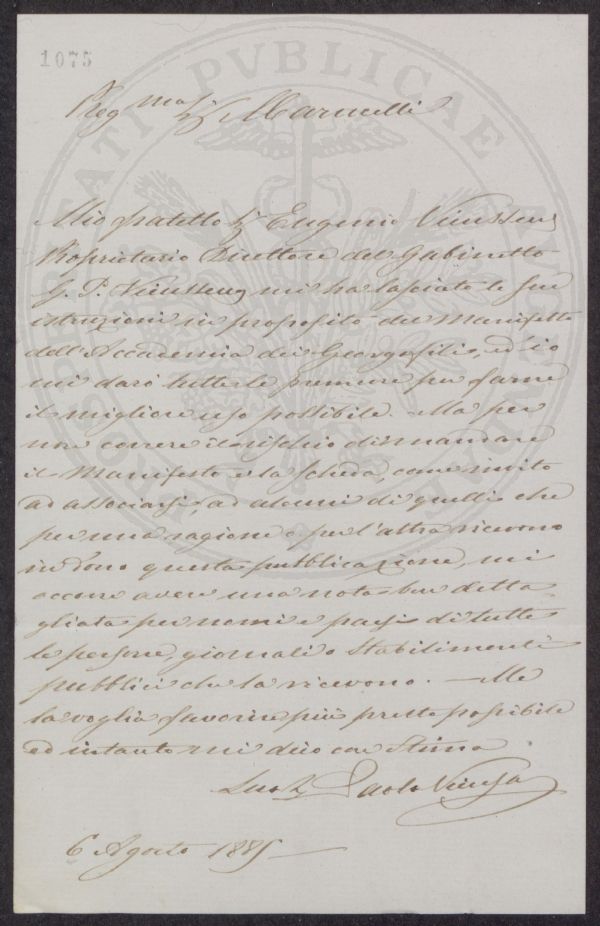 1075
Preg.mo Sig.r Marucelli
Mio fratello Sig.r Eugenio Vieusseux
Proprietario Direttore del Gabinetto
G. P. Vieusseux mi ha lasciato le sue
istruzioni in proposito del Manifesto
dell'Accademia dei Georgofili, ed io
mi darò tutte le premure per farne
il migliore uso possibile. Ma per
non correre il rischio di mandare
il Manifesto e la scheda, come invito
ad associarsi ad alcuni di quelli che
per una ragione o per l'altra ricevono
in dono questa pubblicazione, mi
occorre avere una nota ben detta
gliata per nomi e paesi di tutte
le persone, giornali o Stabilimenti
pubblici che la ricevono. — Me
la voglia favorire più presto possibile
ed intanto mi dico con Stima
Suo Paolo Vieusseux
6 Agosto 1885
PROSPERITATI PVBLICAE AVGENDAE